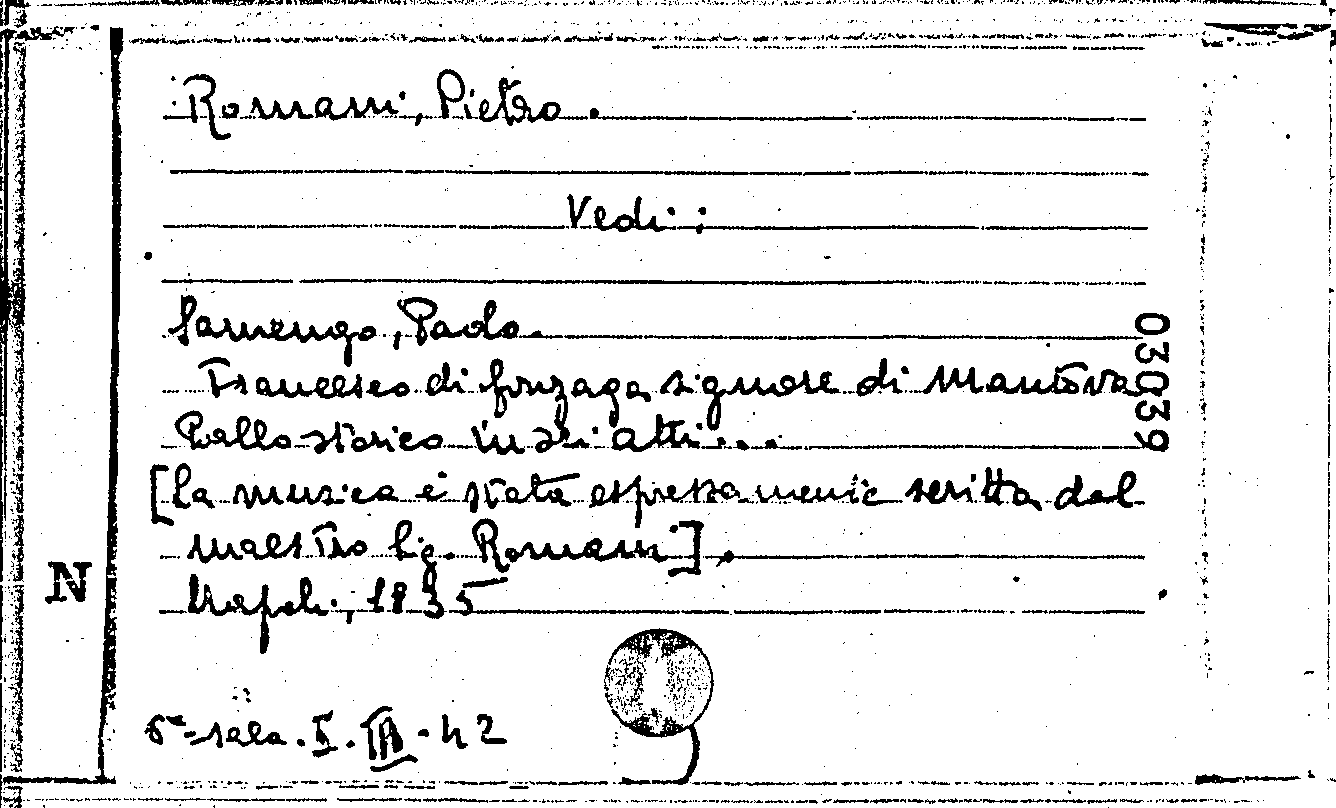 Romani, Pietro.
Vedi:
Samengo, Paolo.
Francesco di Gonzaga signore di Mantova
Ballo storico in sei atti...
[La musica è stata espressamente scritta dal
maestro Sig. Romani].
Napoli, 1835
03039
N
6ª sala. I. III. 42